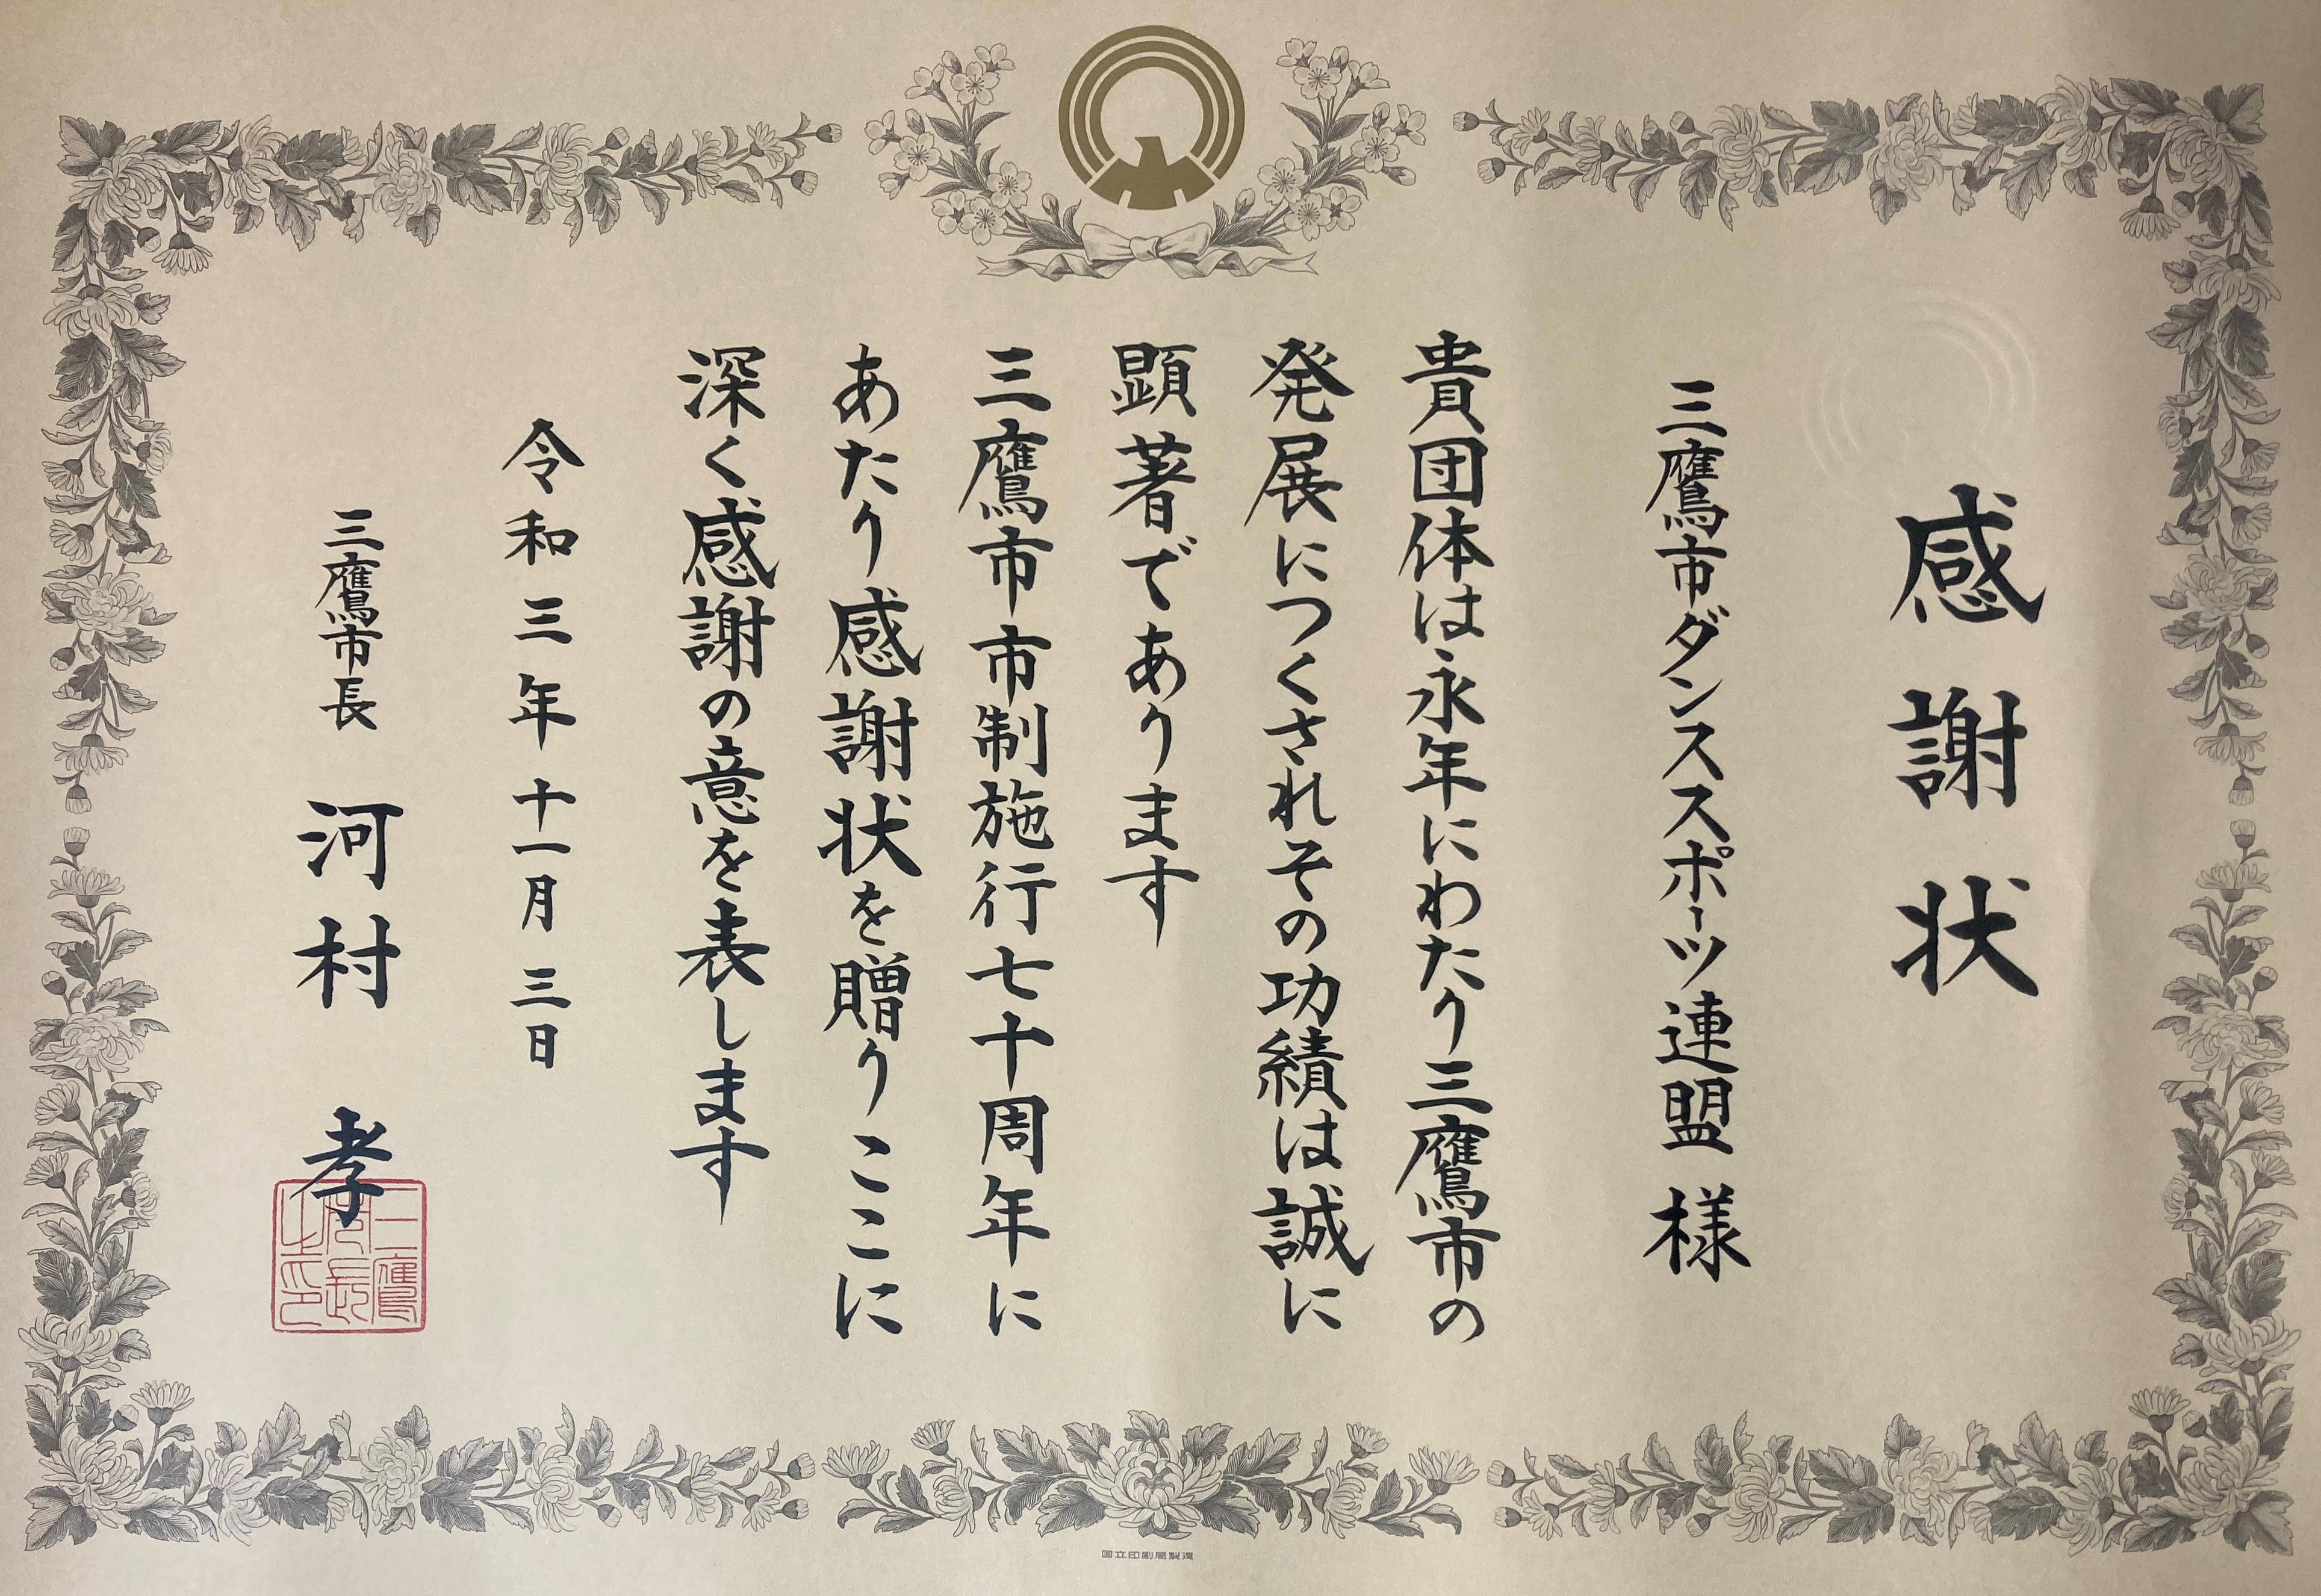 感謝状
三鷹市ダンススポーツ連盟 様
貴団体は永年にわたり三鷹市の
発展につくされその功績は誠に
顕著であります
三鷹市市制施行七十周年に
あたり感謝状を贈りここに
深く感謝の意を表します
令和三年十一月三日
三鷹市長 河村 孝
三鷹市長之印
国立印刷局製造